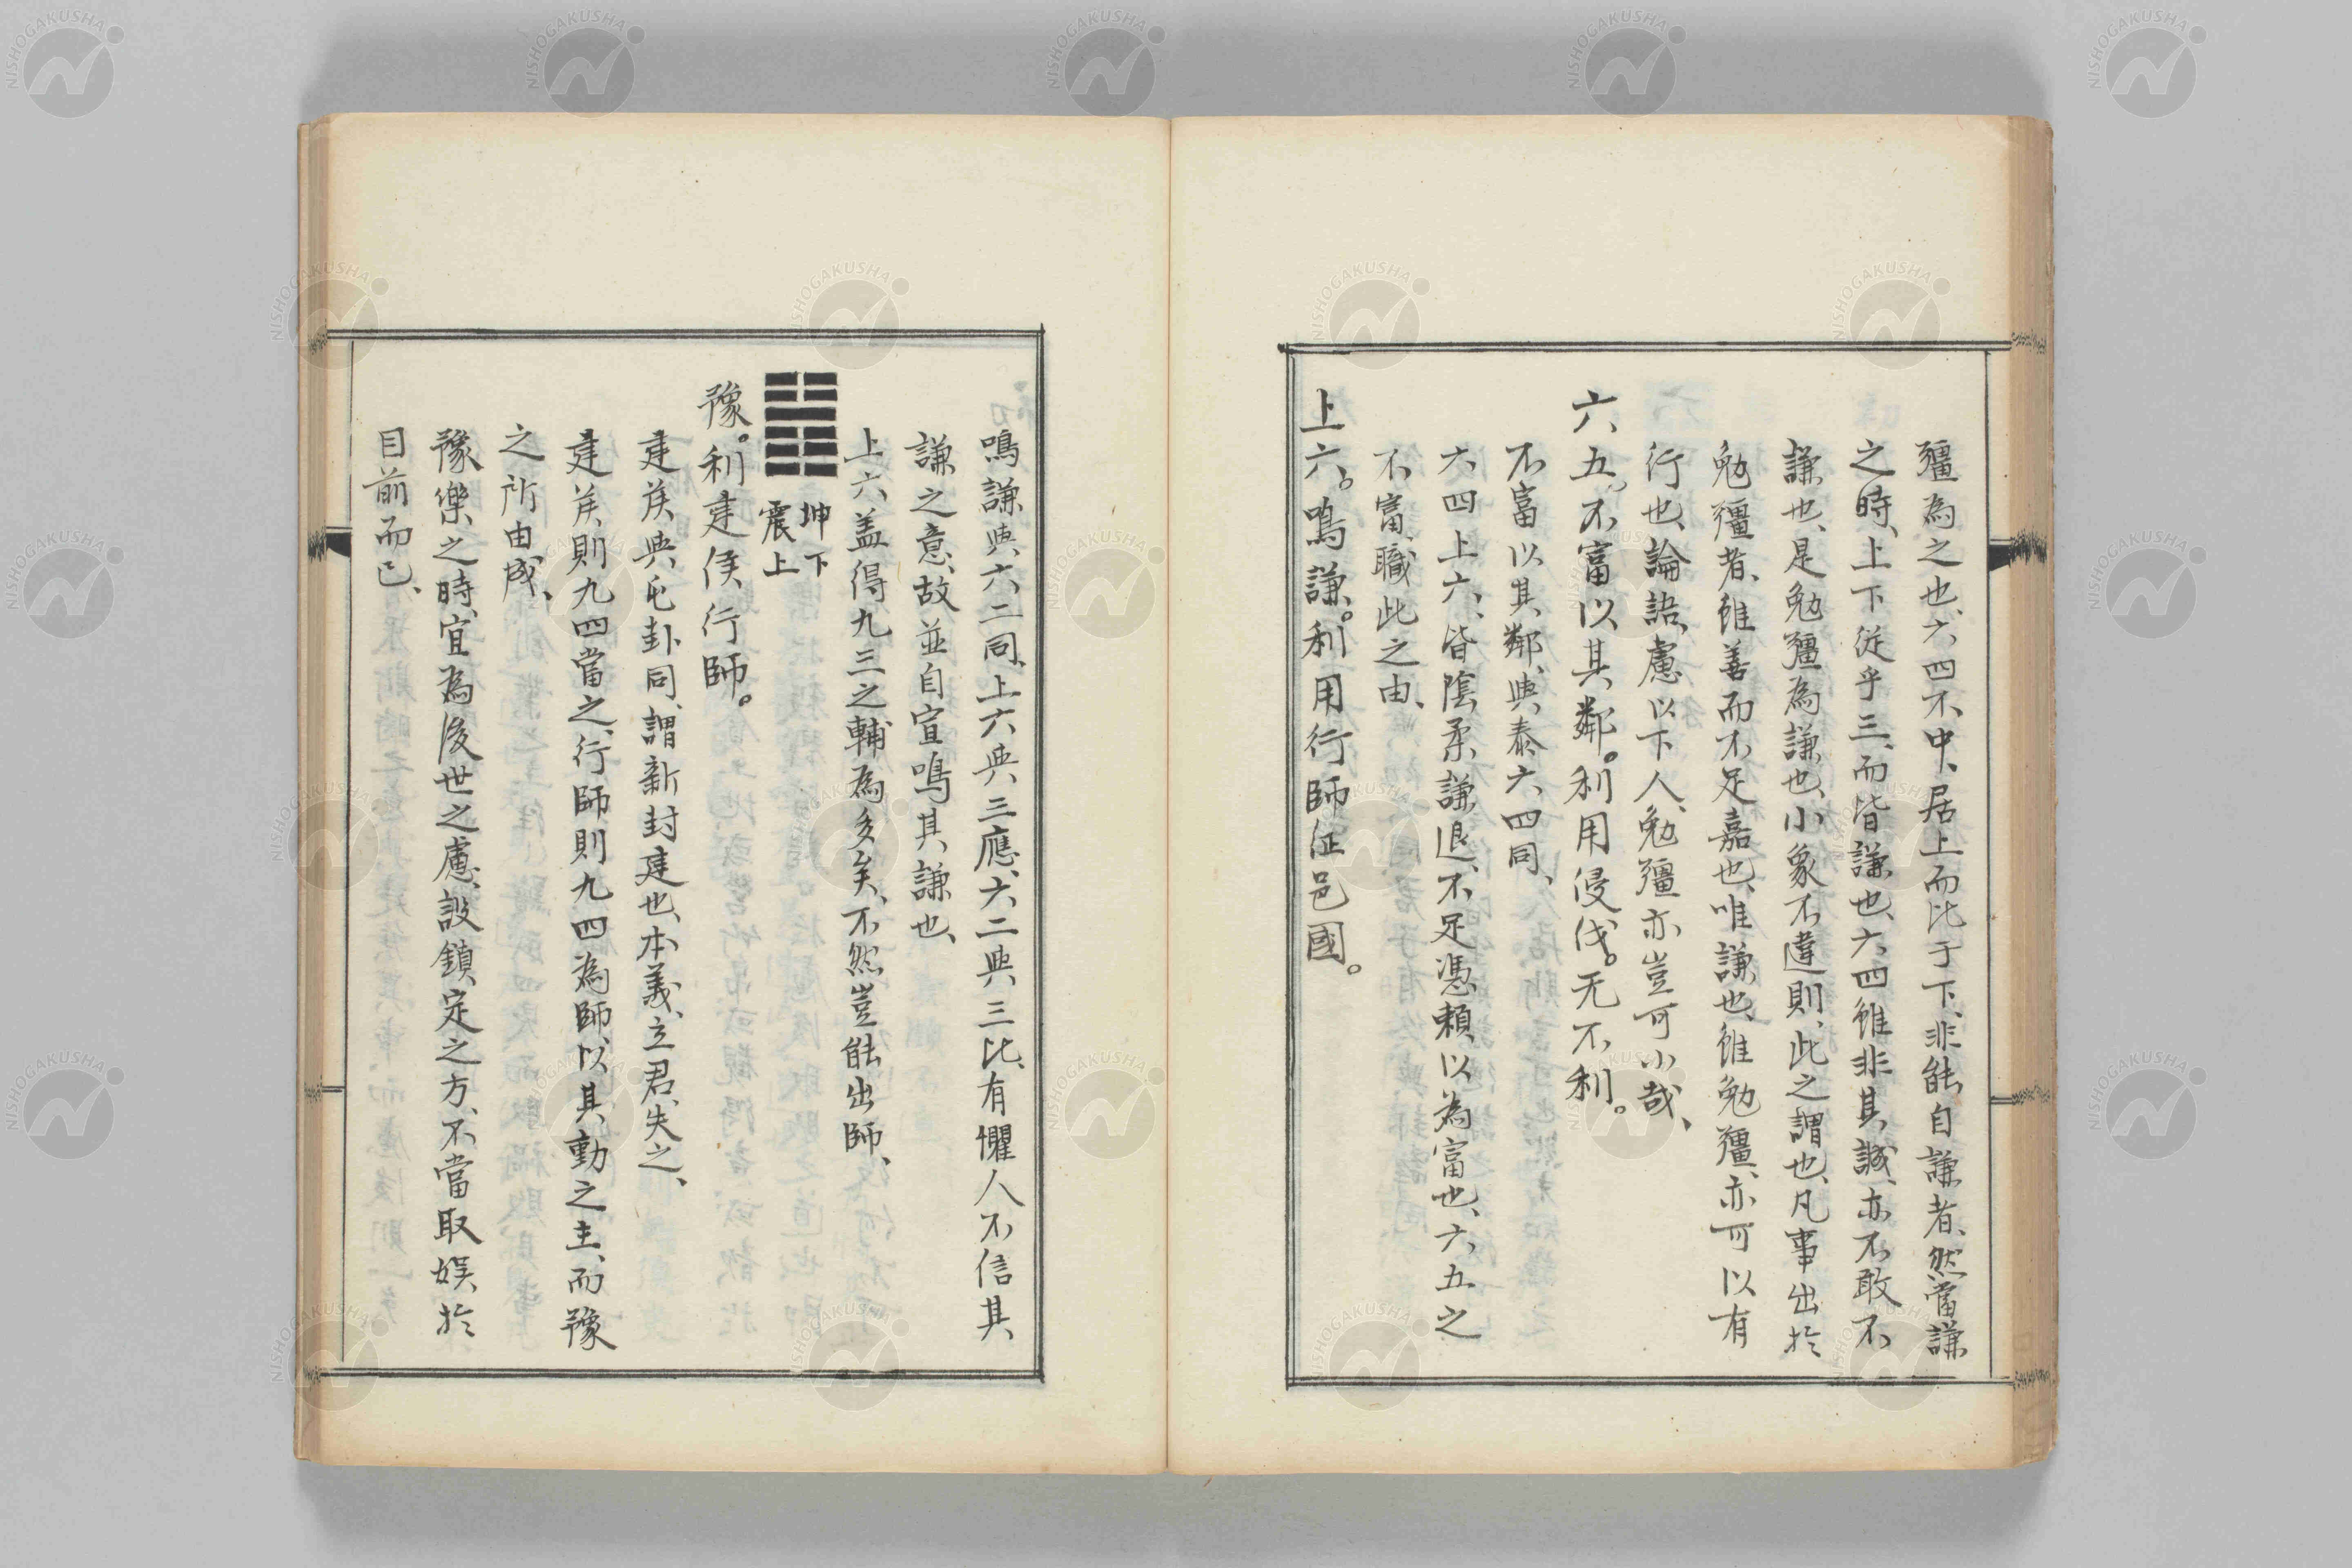 彊為之也、六四不中、居上而比于下、非能自謙者、然當謙
之時、上下従乎三、而皆謙也、六四雖非其誠、亦不敢不
謙也、是勉彊為謙也、小象不違則、此之謂也、凡事出於
勉彊者、雖善而不足嘉也、唯謙也、雖勉彊、亦可以有
行也、論語、慮以下人、勉彊亦豈可小哉、
六五。不富以其鄰。利用侵伐。无不利。
不富以其鄰、與泰六四同、
六四上六、皆陰柔謙退、不足憑頼以為富也、六五之
不富、職此之由、
上六。鳴謙。利用行師征邑國。
鳴謙與六二同、上六與三應、六二與三比、有懼人不信其
謙之意、故並自宣鳴其謙也、
上六蓋得九三之輔為多矣、不然豈能出師、
坤下
震上
豫。利建侯行師。
建侯與屯卦同、謂新封建也、本義、立君、失之、
建侯則九四當之、行師則九四為師、以其動之主、而豫
之所由成、
豫樂之時、宜為後世之慮、設鎮定之方、不當取娯於
目前而已、
NISHOGAKUSHA